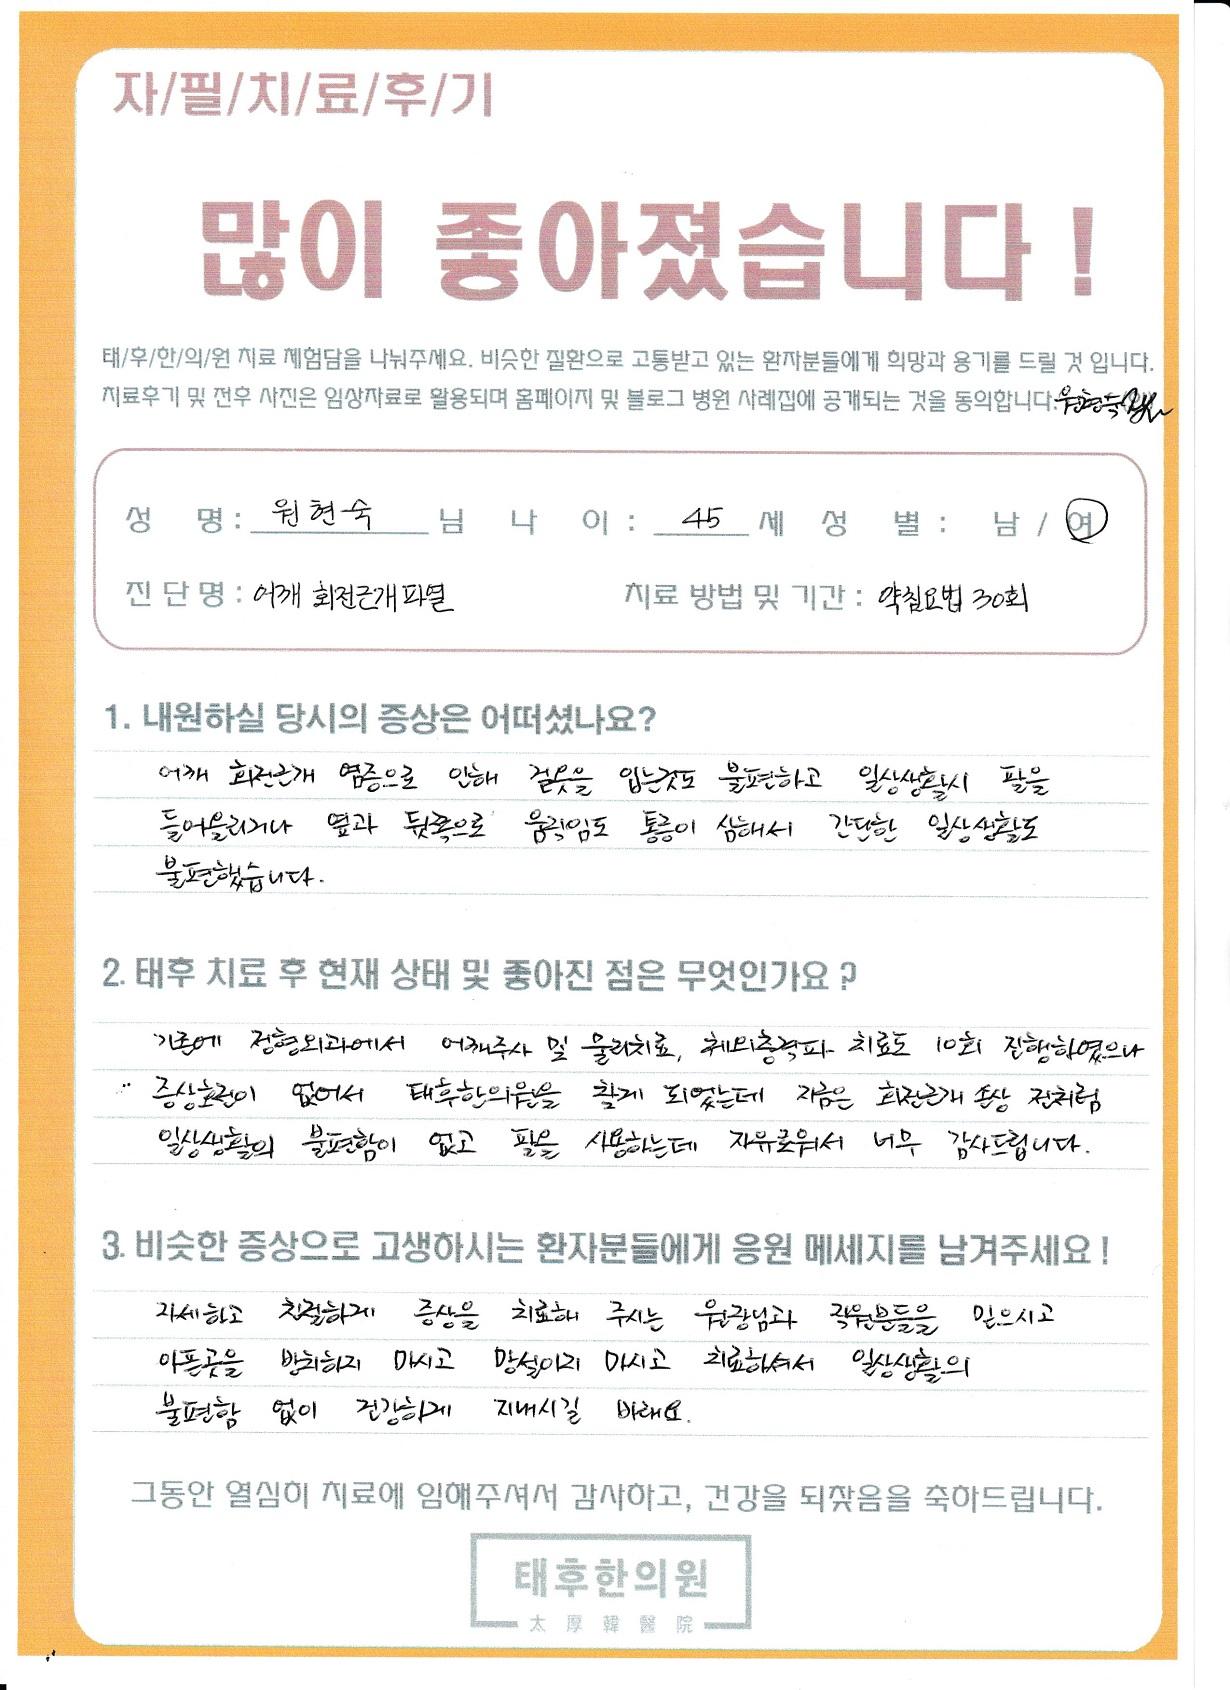 자/필/치/료/후/기
많이 좋아졌습니다!
태/후/한/의/원 치료 체험담을 나눠주세요. 비슷한 질환으로 고통받고 있는 환자분들에게 희망과 용기를 드릴 것 입니다.
치료후기 및 전후 사진은 임상자료로 활용되며 홈페이지 및 블로그 병원 사례집에 공개되는 것을 동의합니다. 원현숙
성 명 : 원현숙 님 나 이 : 45 세 성 별 : 남 / 여
진 단 명 : 어깨 회전근개파열 치료 방법 및 기간 : 약침요법 30회
1. 내원하실 당시의 증상은 어떠셨나요?
어깨 회전근개 염증으로 인해 겉옷을 입는것도 불편하고 일상생활시 팔을
들어올리거나 옆과 뒷쪽으로 움직임도 통증이 심해서 간단한 일상생활도
불편했습니다.
2. 태후 치료 후 현재 상태 및 좋아진 점은 무엇인가요?
기존에 정형외과에서 어깨주사 및 물리치료, 체외충격파 치료도 10회 진행하였으나
증상호전이 없어서 태후한의원을 찾게 되었는데 지금은 회전근개 손상 전처럼
일상생활의 불편함이 없고 팔을 사용하는데 자유로워서 너무 감사드립니다.
3. 비슷한 증상으로 고생하시는 환자분들에게 응원 메세지를 남겨주세요!
자세하고 친절하게 증상을 치료해 주시는 원장님과 직원분들을 믿으시고
아픈곳을 방치하지 마시고 망설이지 마시고 치료하셔서 일상생활의
불편함 없이 건강하게 지내시길 바래요.
그동안 열심히 치료에 임해주셔서 감사하고, 건강을 되찾음을 축하드립니다.
태후한의원
太厚韓醫院